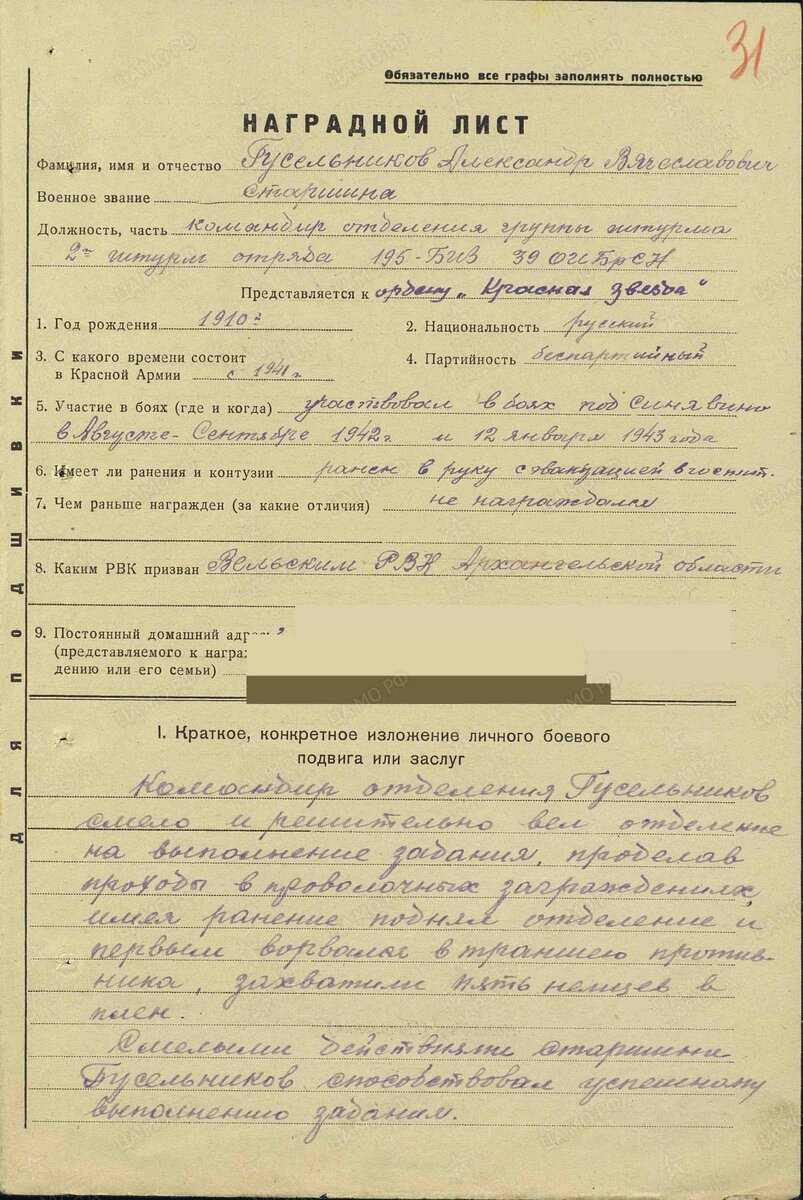 31
Обязательно все графы заполнять полностью
НАГРАДНОЙ ЛИСТ
Фамилия, имя и отчество Гусельников Александр Вячеславович
Военное звание старшина
Должность, часть командир отделения группы штурма
2го штурм отряда 195-БИЗ 39 ОИБрСН
Представляется к ордену „Красная звезда"
1. Год рождения 1910 г
2. Национальность русский
3. С какого времени состоит
в Красной Армии с 1941 г
4. Партийность беспартийный
5. Участие в боях (где и когда) участвовал в боях под Синявино
в Августе-Сентябре 1942 г и 12 января 1943 года
6. Имеет ли ранения и контузии ранен в руку с эвакуацией в госпит.
7. Чем раньше награжден (за какие отличия) не награждался
8. Каким РВК призван Вельским РВК Архангельской области
9. Постоянный домашний адрес
(представляемого к награ
дению или его семьи)
ДЛЯ ПОДШИВКИ
I. Краткое, конкретное изложение личного боевого
подвига или заслуг
Командир отделения Гусельников
смело и решительно вел отделение
на выполнение задания, проделав
проходы в проволочных заграждениях,
имея ранение поднял отделение и
первым ворвался в траншею против-
ника, захватили пять немцев в
плен.
Смелыми действиями старшина
Гусельников способствовал успешному
выполнению задания.
ЦАМО РФ